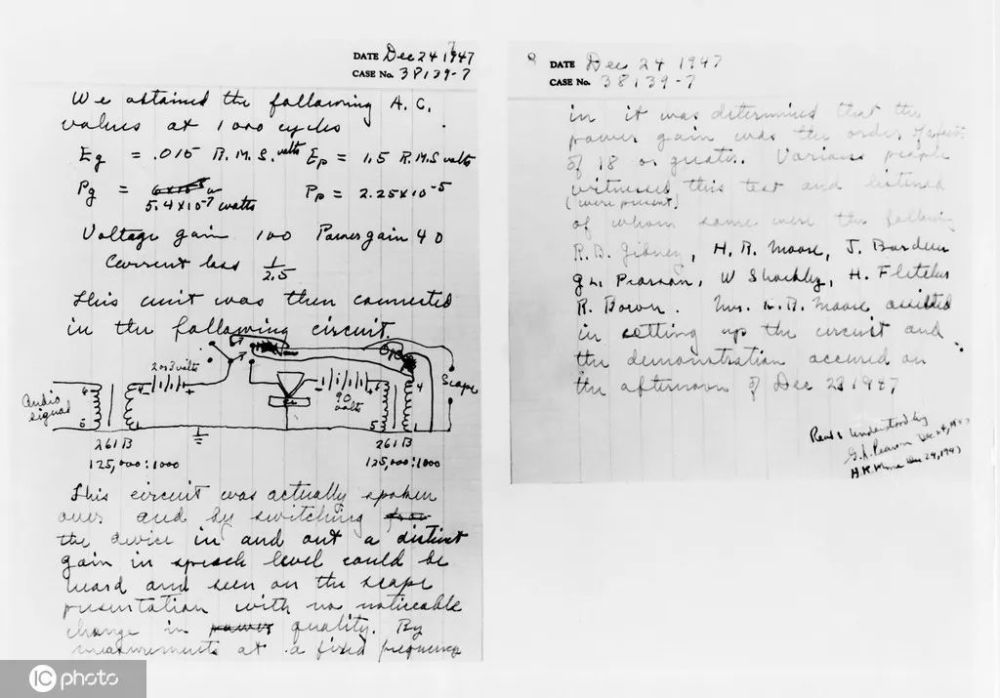 DATE Dec 24 1947
CASE No. 38139-7
We obtained the following A.C.
values at 1000 cycles
Eg = .015 R.M.S. volts Ep = 1.5 R.M.S volts
Pg = 5.4 x 10-7 watts Pp = 2.25 x 10-5
Voltage gain 100 Power gain 40
Current loss 1/2.5
This unit was then connected
in the following circuit.
audio signal
2 or 3 volts
90 volts
Scope
261B
125,000:1000
261B
125,000:1000
This circuit was actually spoken
over and by switching
the device in and out a distinct
gain in speech level could be
heard and seen on the scope
presentation with no noticeable
change in quality. By
measurements at a fixed frequency
DATE Dec 24 1947
CASE No. 38139-7
in it was determined that the
power gain was the order of a factor
of 18 or greater. Various people
witnessed this test and listened
(were present)
of whom some were the following
R.B. Gibney, H.R. Moore, J. Bardeen
G.L. Pearson, W Shockley, H. Fletcher
R. Bown. Mr. H.R. Moore assisted
in setting up the circuit and
the demonstration occured on
the afternoon of Dec 23 1947
Read & Understood by
G.L. Pearson Dec 24, 1947
H.R. Moore Dec 24, 1947
IC photo